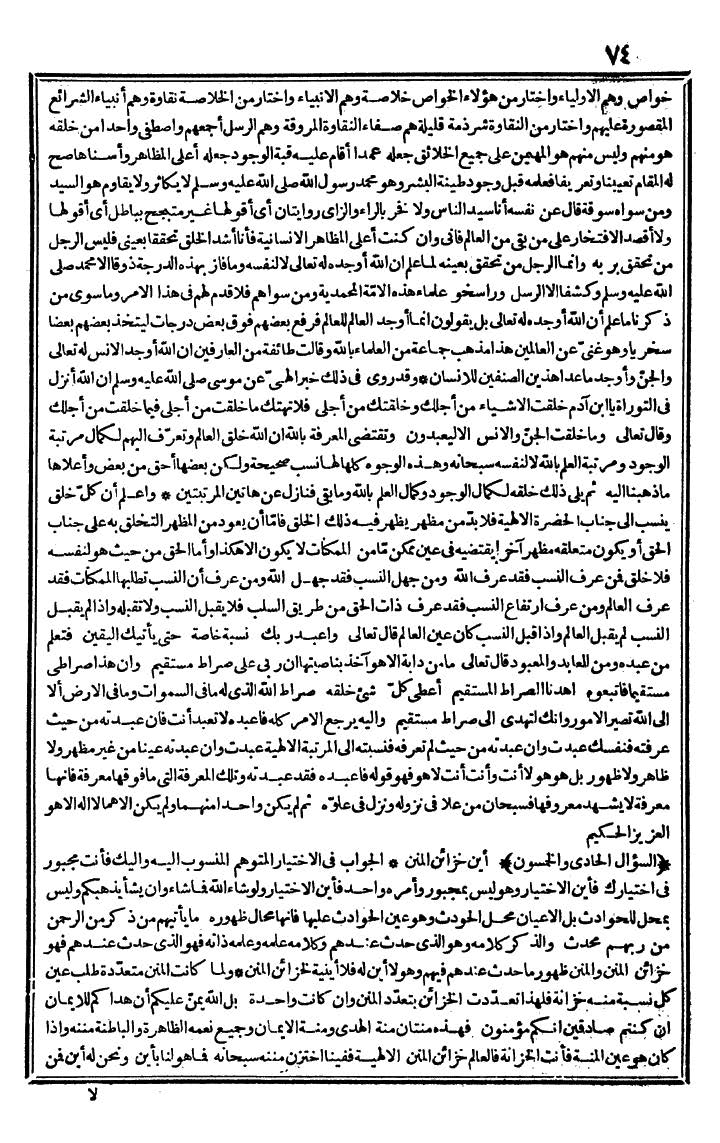 ٧٤
خواص وهم الاولياء واختار من هؤلاء الخواص خلاصة وهم الانبياء واختار من الخلاصة نقاوة وهم أنبياء الشرائع
المقصورة عليهم واختار من النقاوة شرذمة قليلة هم صفاء النقاوة المروقة وهم الرسل أجعهم واصطفى واحدا من خلقه
هو منهم وليس منهم هو المهيمن على جميع الخلائق جعله عمدا أقام عليه قبة الوجود جعله أعلى المظاهر وأسناها صح
له المقام تعيينا وتعريفا فعلمه قبل وجود طينة البشر وهو محمد رسول الله صلى الله عليه وسلم لا يكاثر ولا يقاوم هو السيد
ومن سواه سوقة قال عن نفسه أنا سيد الناس ولا نخر بالراء والزاى روايتان أى أقولها غير متبجح بباطل أى أقولها
ولا أقصد الافتخار على من بقى من العالم فانى وان كنت أعلى المظاهر الانسانية فأنا أشد الخلق تحققا بعينى فليس الرجل
من تحقق بربه وانما الرجل من تحقق بعينه لما علم ان الله أوجده له تعالى لا لنفسه وما فاز بهذه الدرجة ذوقا الا محمد صلى
الله عليه وسلم وكشفا الا الرسل وراسخو علماء هذه الامّة المحمدية ومن سواهم فلا قدم لهم فى هذا الامر وما سوى من
ذكرنا ما علم أن الله أوجده له تعالى بل يقولون انما أوجد العالم للعالم فرفع بعضهم فوق بعض درجات ليتخذ بعضهم بعضا
سخريا وهو غنىّ عن العالمين هذا مذهب جماعة من العلماء بالله وقالت طائفة من العارفين ان الله أوجد الانس له تعالى
والجنّ وأوجد ما عدا هذين الصنفين للانسان * وقد روى فى ذلك خبر الهىّ عن موسى صلى الله عليه وسلم ان الله أنزل
فى التوراة يا ابن آدم خلقت الاشياء من أجلك وخلقتك من أجلى فلا تهتك ما خلقت من أجلى فيما خلقت من أجلك
وقال تعالى وما خلقت الجنّ والانس الا ليعبدون وتقتضى المعرفة بالله ان الله خلق العالم وتعرّف اليهم لكمال مرتبة
الوجود ومرتبة العلم بالله لا لنفسه سبحانه وهذه الوجوه كلها لها نسب صحيحة ولكن بعضها أحق من بعض وأعلاها
ما ذهبنا اليه ثم يلى ذلك خلقه لكمال الوجود وكمال العلم بالله وما بقى فنازل عن هاتين المرتبتين * واعلم أن كلّ خلق
ينسب الى جناب الحضرة الالهية فلا بدّ من مظهر يظهر فيه ذلك الخلق فامّا أن يعود من المظهر التخلق به على جناب
الحق أو يكون متعلقه مظهرا آخر يقتضيه فى عين ممكن مّا من الممكنات لا يكون الا هكذا وأما الحق من حيث هو لنفسه
فلا خلق فمن عرف النسب فقد عرف الله ومن جهل النسب فقد جهل الله ومن عرف أن النسب تطلبها الممكنات فقد
عرف العالم ومن عرف ارتفاع النسب فقد عرف ذات الحق من طريق السلب فلا يقبل النسب ولا تقبله واذا لم يقبل
النسب لم يقبل العالم واذا قبل النسب كان عين العالم قال تعالى واعبد ربك نسبة خاصة حتى يأتيك اليقين فتعلم
من عبده ومن للعابد والمعبود قال تعالى ما من دابة الا هو آخذ بناصيتها ان ربى على صراط مستقيم وان هذا صراطى
مستقيما فاتبعوه اهدنا الصراط المستقيم أعطى كلّ شئ خلقه صراط الله الذى له ما فى السموات وما فى الارض ألا
الى الله تصير الامور وانك لتهدى الى صراط مستقيم واليه يرجع الامر كله فاعبده لا تعبد أنت فان عبدته من حيث
عرفته فنفسك عبدت وان عبدته من حيث لم تعرفه فنسبته الى المرتبة الالهية عبدت وان عبدته عينا من غير مظهر ولا
ظاهر ولا ظهور بل هو هو لا أنت وأنت أنت لا هو فهو قوله فاعبده فقد عبدته وتلك المعرفة التى ما فوقها معرفة فانها
معرفة لا يشهد معروفها فسبحان من علا فى نزوله ونزل فى علوّه ثم لم يكن واحدا منهما ولم يكن الا هما لا اله الا هو
العزيز الحكيم
﴿السؤال الحادى والخمسون﴾ أين خزائن المنن * الجواب فى الاختيار المتوهم المنسوب اليه واليك فأنت مجبور
فى اختيارك فأين الاختيار وهو ليس بمجبور وأمره واحد فأين الاختيار ولو شاء الله فما شاء وان يشأ يذهبكم وليس
بمحل للحوادث بل الاعيان محل الحوادث وهو عين الحوادث عليها فانها محال ظهوره ما يأتيهم من ذكر من الرحمن
من ربهم محدث والذكر كلامه وهو الذى حدث عندهم وكلامه علمه وعلمه ذاته فهو الذى حدث عندهم فهو
خزائن المنن والمنن ظهور ما حدث عندهم فيهم وهو لا أين له فلا أينية لخزائن المنن * ولما كانت المنن متعدّدة طلب عين
كل نسبة منه خزانة فلهذا تعدّدت الخزائن بتعدّد المنن وان كانت واحدة بل الله يمنّ عليكم أن هداكم للايمان
ان كنتم صادقين انكم مؤمنون فهذه منتان منة الهدى ومنة الايمان وجميع نعمه الظاهرة والباطنة مننه واذا
كان هو عين المنة فأنت الخزانة فالعالم خزائن المنن الالهية ففينا اختزن مننه سبحانه فما هو لنا بأين ونحن له أين فمن
لا